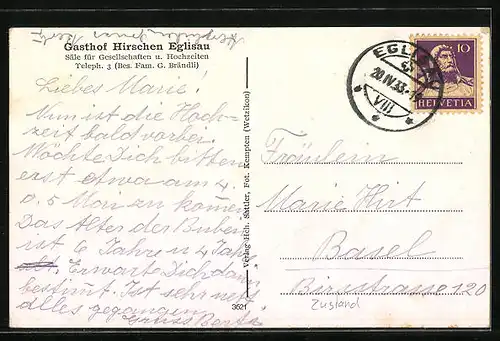 Gasthof Hirschen Eglisau
Säle für Gesellschaften u. Hochzeiten
Teleph. 3 (Bes. Fam. G. Brändli)
Liebe Marie!
Nun ist die Hoch-
zeit bald vorbei.
Möchte Dich bitten
erst etwa am 4.
o. 5 Mai zu kommen
Das Alter der Buben
ist 6 Jahre u 4 Jahre
Erwarte Dich dann
bestimmt. Ist sehr nett
alles gegangen.
Gruss Berta
Verlag Hch. Sattler, Fot. Kempten (Wetzikon)
3621
EGLISAU
20.IV.33
VIII
10
HELVETIA
Fräulein
Marie Hirt
Basel
Birsstrasse 120
Zustand